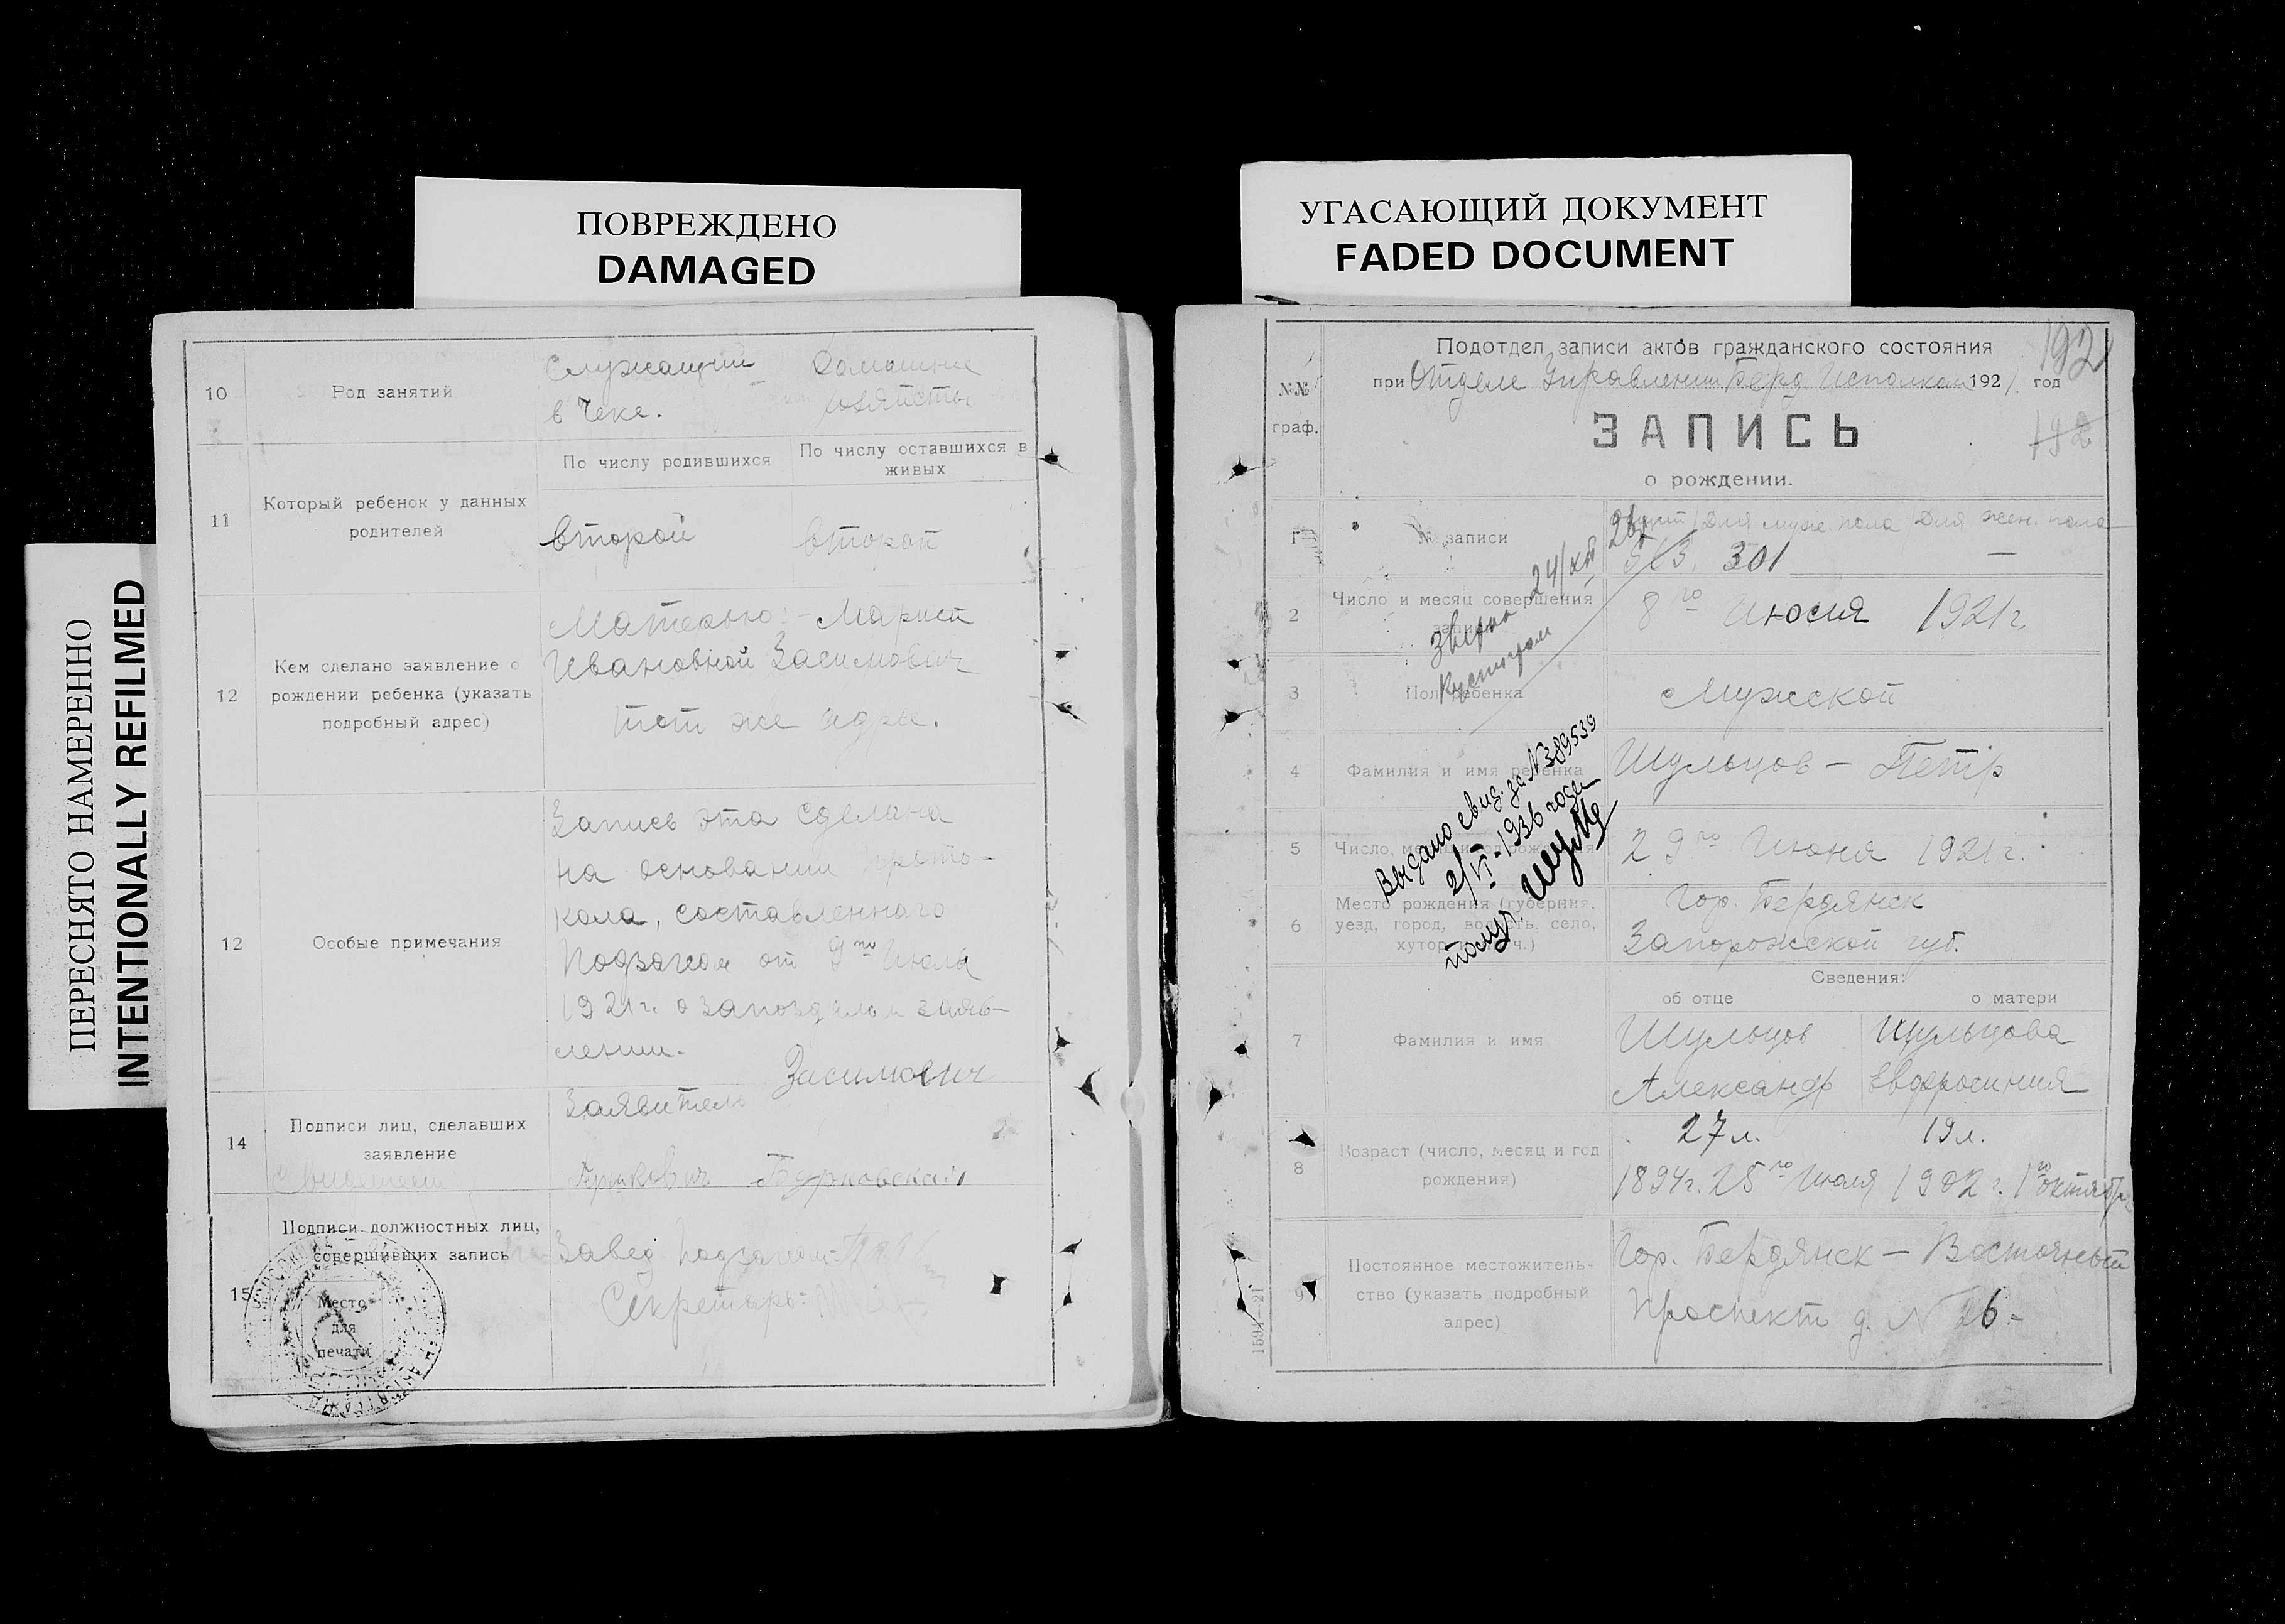 ПОВРЕЖДЕНО
DAMAGED
ПЕРЕСНЯТО НАМЕРЕННО
INTENTIONALLY REFILMED
10
Род занятий
Служащий
в Чеке.
Домашние
11
Который ребенок у данных
родителей
По числу родившихся
По числу оставшихся в
живых
второй
второй
12
Кем сделано заявление о
рождении ребенка (указать
подробный адрес)
Матерью: - Марией
Ивановной Засимович
тот же адрес.
12
Особые примечания
Запись эта сделана
на основании прото-
кола, составленнаго
Подзагом от 9го Июля
1921г. о запоздалом заяв-
лении.
14
Подписи лиц, сделавших
заявление
Заявитель
Засимович
Бурковская
15
Подписи должностных лиц,
совершивших запись
Место
для
печати
Завед. Подзагом
Секретарь:
УГАСАЮЩИЙ ДОКУМЕНТ
FADED DOCUMENT
192
№№
граф.
Подотдел записи актов гражданского состояния
при Отделе Управления Берд Исполкома 1921. год
192
ЗАПИСЬ
о рождении.
1
№ записи
Для муж. пола
Для жен. пола
301
—
24/XII
2
Число и месяц совершения
записи
8го Июля 1921г.
3
Пол ребенка
Мужской
4
Фамилия и имя ребенка
Шульцов - Петр
Выдано свид. за N389539
2/VI-1936 года
5
Число, месяц и год рождения
29го Июня 1921г.
6
Место рождения (губерния,
уезд, город, волость, село,
хутор
Гор. Бердянск
Запорожской губ.
Сведения:
об отце
о матери
7
Фамилия и имя
Шульцов
Александр
Шульцова
Евфросиния
8
Возраст (число, месяц и год
рождения)
27 л.
1894г. 25го Июля
19 л.
1902 г. 1го октября
9
Постоянное местожитель-
ство (указать подробный
адрес)
Гор. Бердянск - Восточный
Проспект д. N 26.-